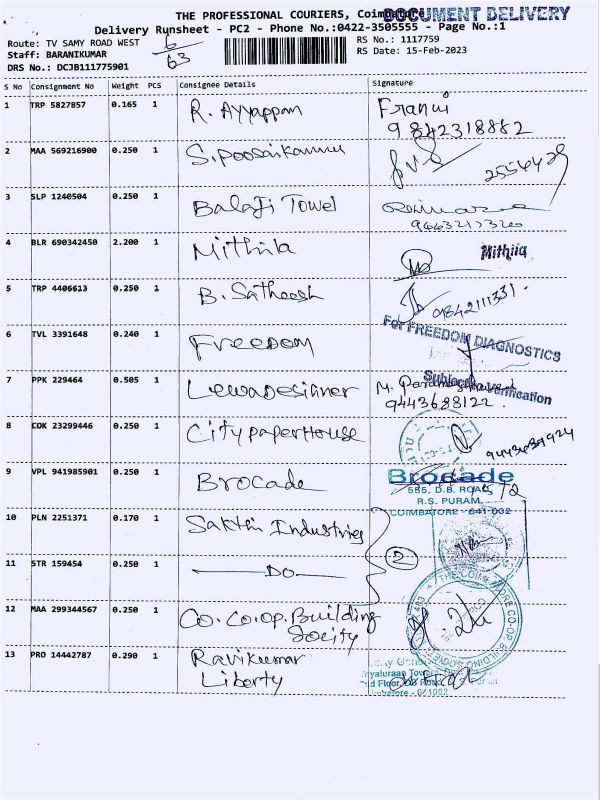 THE PROFESSIONAL COURIERS, Coimbatore
DOCUMENT DELIVERY
Delivery Runsheet - PC2 - Phone No.:0422-3505555 - Page No.:1
Route: TV SAMY ROAD WEST
Staff: BARANIKUMAR
DRS No.: DCJB111775901
6/63
RS No.: 1117759
RS Date: 15-Feb-2023
S No Consignment No Weight PCS Consignee Details Signature
1 TRP 5827857 0.165 1 R. Ayyappan
9842318882
2 MAA 569216900 0.250 1
2554429
3 SLP 1240504 0.250 1 Balaji Towel
4 BLR 690342450 2.200 1 Mithila Mithila
5 TRP 4406613 0.250 1 B. Satheesh 9842111331.
6 TVL 3391648 0.240 1 Freedom For FREEDOM DIAGNOSTICS
7 PPK 229464 0.505 1 Subject to Verification
9443688122.
8 COK 23299446 0.250 1 City paper House
9 VPL 941985901 0.250 1 Brocade Brocade
585, D.B. ROAD,
R.S. PURAM,
COIMBATORE - 641 002
10 PLN 2251371 0.170 1 Sakthi Industries
2
11 STR 159454 0.250 1 DO
12 MAA 299344567 0.250 1 Co. Co. op. Building
Socity
13 PRO 14442787 0.290 1 Ravikumar
Liberty